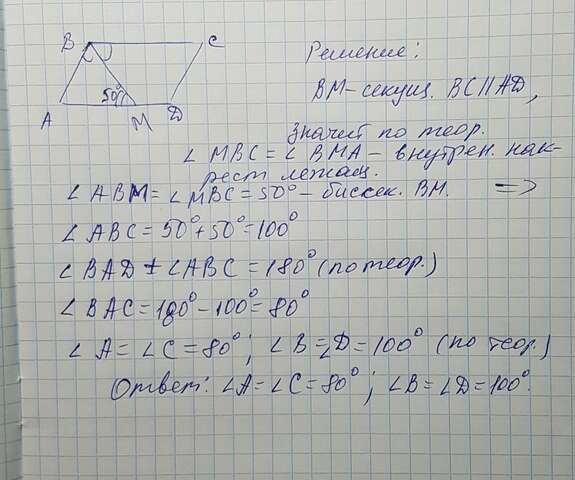 B
C
A
50°
M
D
Решение:
BM - секущ. BC || AD,
значит по теор.
∠ MBC = ∠ BMA - внутрен. нак-
рест лежащ.
∠ ABM = ∠ MBC = 50° - биссек. BM. =>
∠ ABC = 50° + 50° = 100°
∠ BAD + ∠ ABC = 180° (по теор.)
∠ BAC = 180° - 100° = 80°
∠ A = ∠ C = 80°; ∠ B = ∠ D = 100° (по теор.)
Ответ: ∠ A = ∠ C = 80°; ∠ B = ∠ D = 100°.